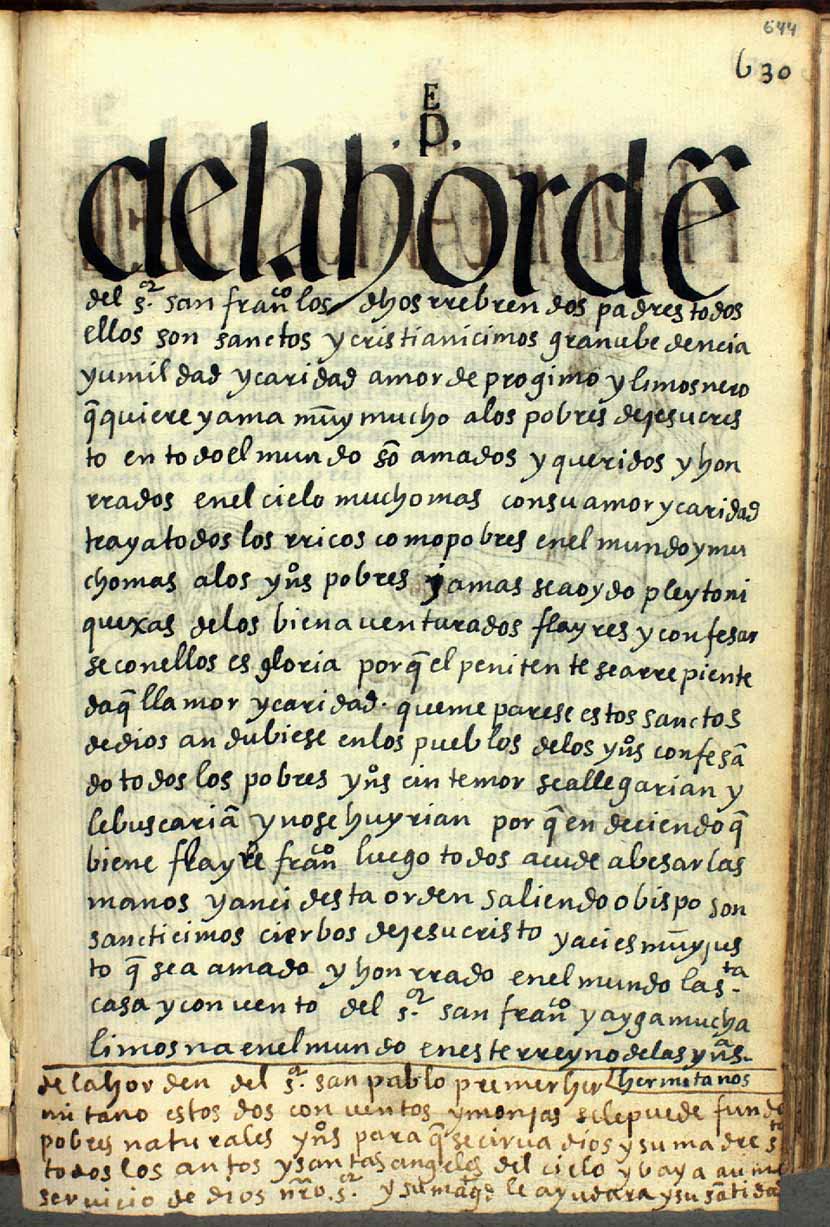 644
630
E
.p.
delahordē
del s.or san franco los dhos rrebrendos padres todos
ellos son sanctos ycristianicimos granubedencia
yumildad ycaridad amor de progimo y limosnero
q̄ quiere yama mūy mucho alos pobres dejesucris
to en todo el mundo sō amados y queridos y hon
rrados enel cielo muchomas consu amor ycaridad
traya todos los rricos como pobres enel mundo ymu
chomas alos yn̄s pobres jamas sea oydo pleytoni
quexas delos biena uenturados flayres y confesar
seconellos es gloria porq̄ el penitente searrepiente
daq̄lla mor ycaridad. queme parese estos sanctos
dedios andubiese enlos pueblos delos yn̄s confesā
do todos los pobres yn̄s cin temor seallegarian y
lebuscariā ynose huyrian por q̄ en deciendo q̄
biene flayre franco luego todos acude abesar las
manos yanci desta orden saliendo obispo son
sancticimos cierbos dejesucristo yacies mūy jus
to q̄ sea amado y honrrado enel mundo la s.ta
casa yconuento del s.or san franco yaygamucha
limosna enelmundo enesterreyno delas yn̄as.
delahorden del s.or san pablo premer her
hermitanos
mitano estos dos conuentos ymonjas selepuede funda
pobres naturales yn̄s para q̄ se cirua dios ysu madre s.ta
todos los santos ysantas angeles del cielo ybaya aume
seruicio de dios nr̄o. s.or ysu mag.d le ayudara ysu sātida